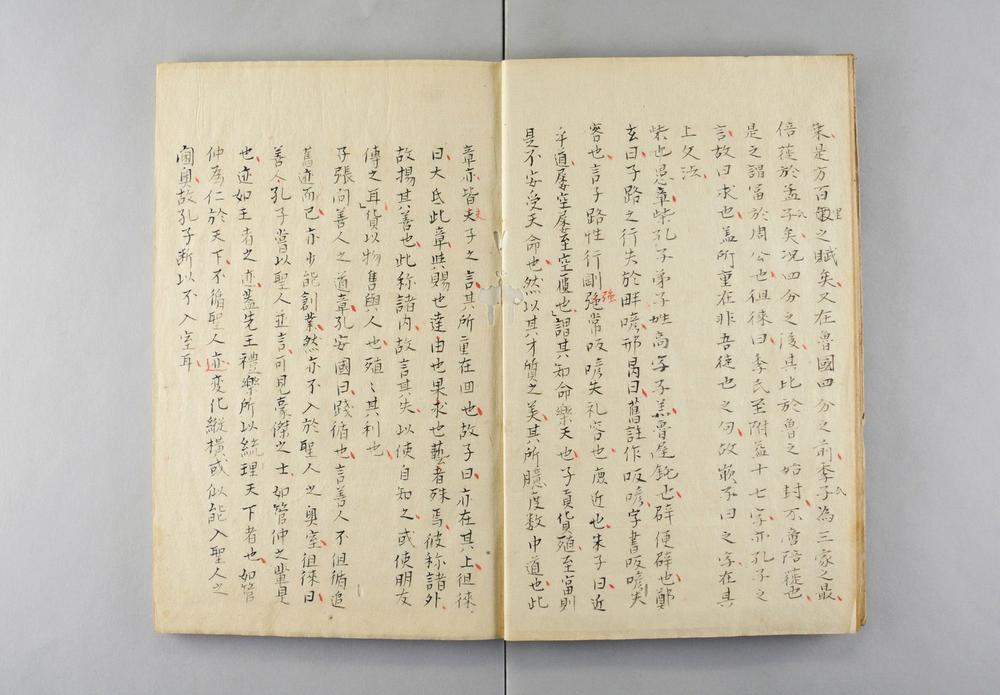 乗是方百里之賦矣又在魯國四分之前季子為三家之最
倍蓰於孟子矣况四分之後其比於魯之始封不啻陪蓰也
是之謂富於周公也徂徠曰季氏至附益十七字亦孔子之
言故曰求也蓋所重在非吾徒也之句故嵌不曰之字在其
上文法
柴也愚章柴孔子弟子姓高字子羔魯遅鈍也辟便辟也鄭
玄曰子路之行失於畔喭邢昺曰舊註作㕫喭字書㕫喭失
容也言子路性行剛強常㕫喭失礼容也庶近也朱子曰近
乎道屡空屡至空匱也謂其知命樂天也子貢貨殖至富則
是不安受天命也然以其才質之美其所臆度数中道也此
章亦皆夫子之言其所重在回也故子曰亦在其上徂徠
曰大氐此章與賜也達由也果求也藝者殊焉彼称諸外
故揚其善也此称諸内故言其失以使自知之或使朋友
傳之耳貨以物售與人也殖〻其利也
子張問善人之道章孔安國曰踐循也言善人不但循追
舊迹而已亦少能創業然亦不入於聖人之奥室徂徠曰
善人孔子嘗以聖人並言可見豪傑之士如管仲之輩是
也迹如王者之迹蓋先王禮樂所以統理天下者也如管
仲為仁於天下不循聖人迹変化縦横或似能入聖人之
閫奥故孔子断以不入室耳